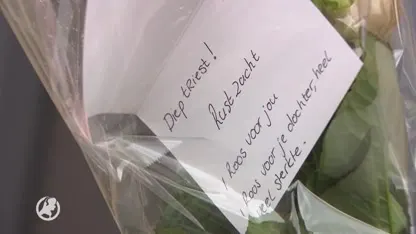 Diep triest!
Rust zacht
1 Roos voor jou
1 Roos voor je dochter, heel
veel sterkte.